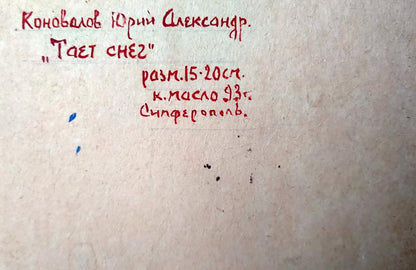 Коновалов Юрий Александр.
„Тает снег"
разм. 15-20см.
к. масло 93г.
Симферополь.